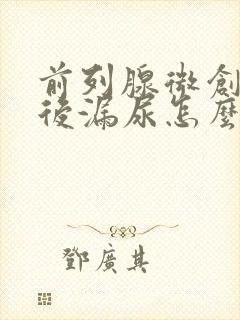 前列腺微創
後漏尿怎麼
鄧廣其